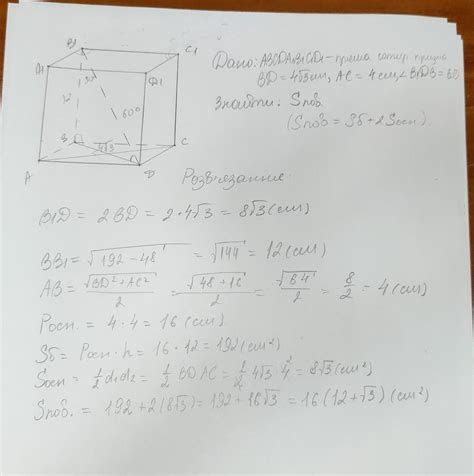 B1
C1
A1
D1
30°
12
60°
B
4√3
C
A
D
Дано: ABCDA1B1C1D1 - пряма чотир. призма
BD = 4√3 cm, AC = 4 cm, ∠B1DB = 60
Знайти: Sпов.
(Sпов = Sб + 2Sосн).
Розв'язання:
B1D = 2BD = 2·4√3 = 8√3 (cm)
BB1 = √192 - 48 = √144 = 12 (cm)
AB = √BD² + AC² / 2 = √48 + 16 / 2 = √64 / 2 = 8/2 = 4 (cm)
Pосн. = 4·4 = 16 (cm)
Sб = Pосн·h = 16·12 = 192 (cm²)
Sосн = 1/2 d1d2 = 1/2 BD AC = 1/2 4√3 4² = 8√3 (cm²)
Sпов. = 192 + 2(8√3) = 192 + 16√3 = 16(12 + √3) (cm²)